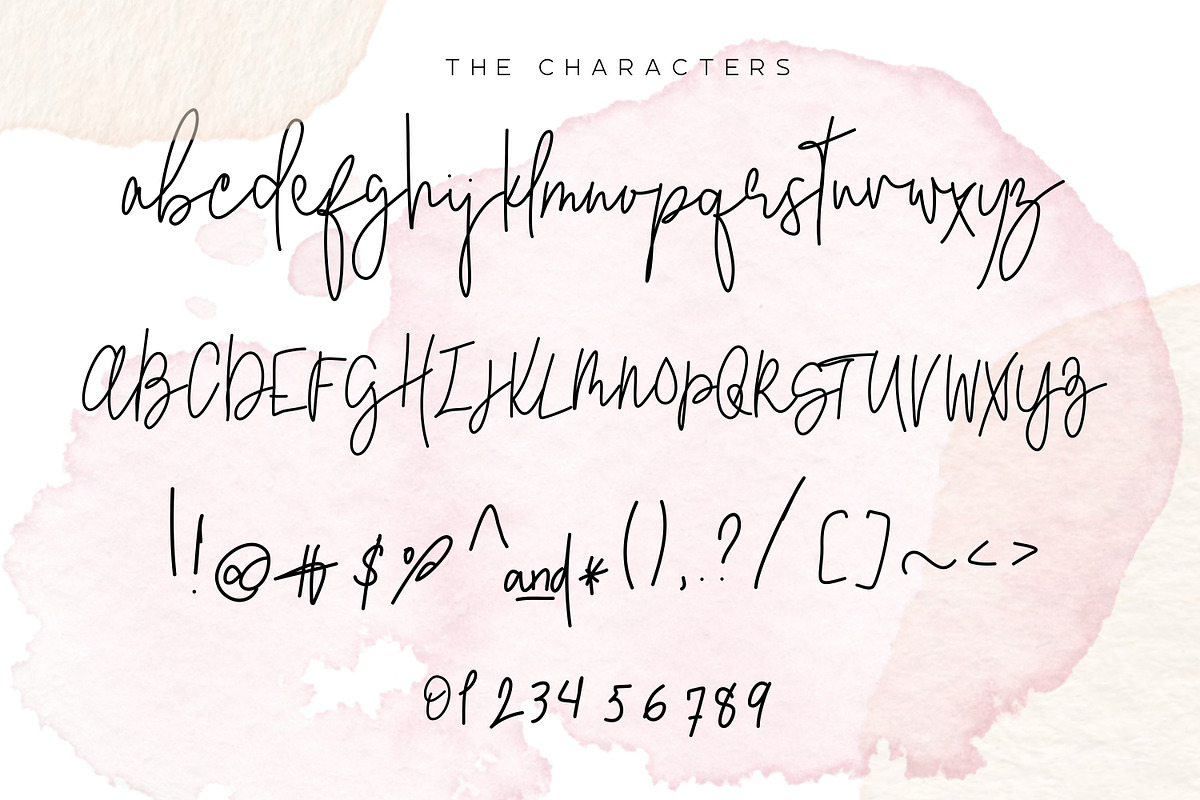 THE CHARACTERS
abcdefghijklmnopqrstuvwxyz
ABCDEFGHIJKLMNOPQRSTUVWXYZ
|!@#$%^and*(),.?/[]~<>
0123456789